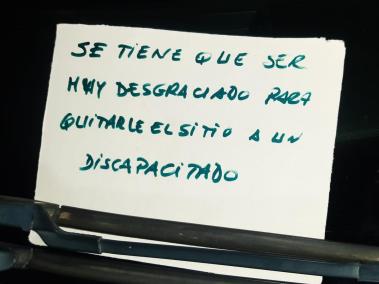 SE TIENE QUE SER
MUY DESGRACIADO PARA
QUITARLE EL SITIO A UN
DISCAPACITADO